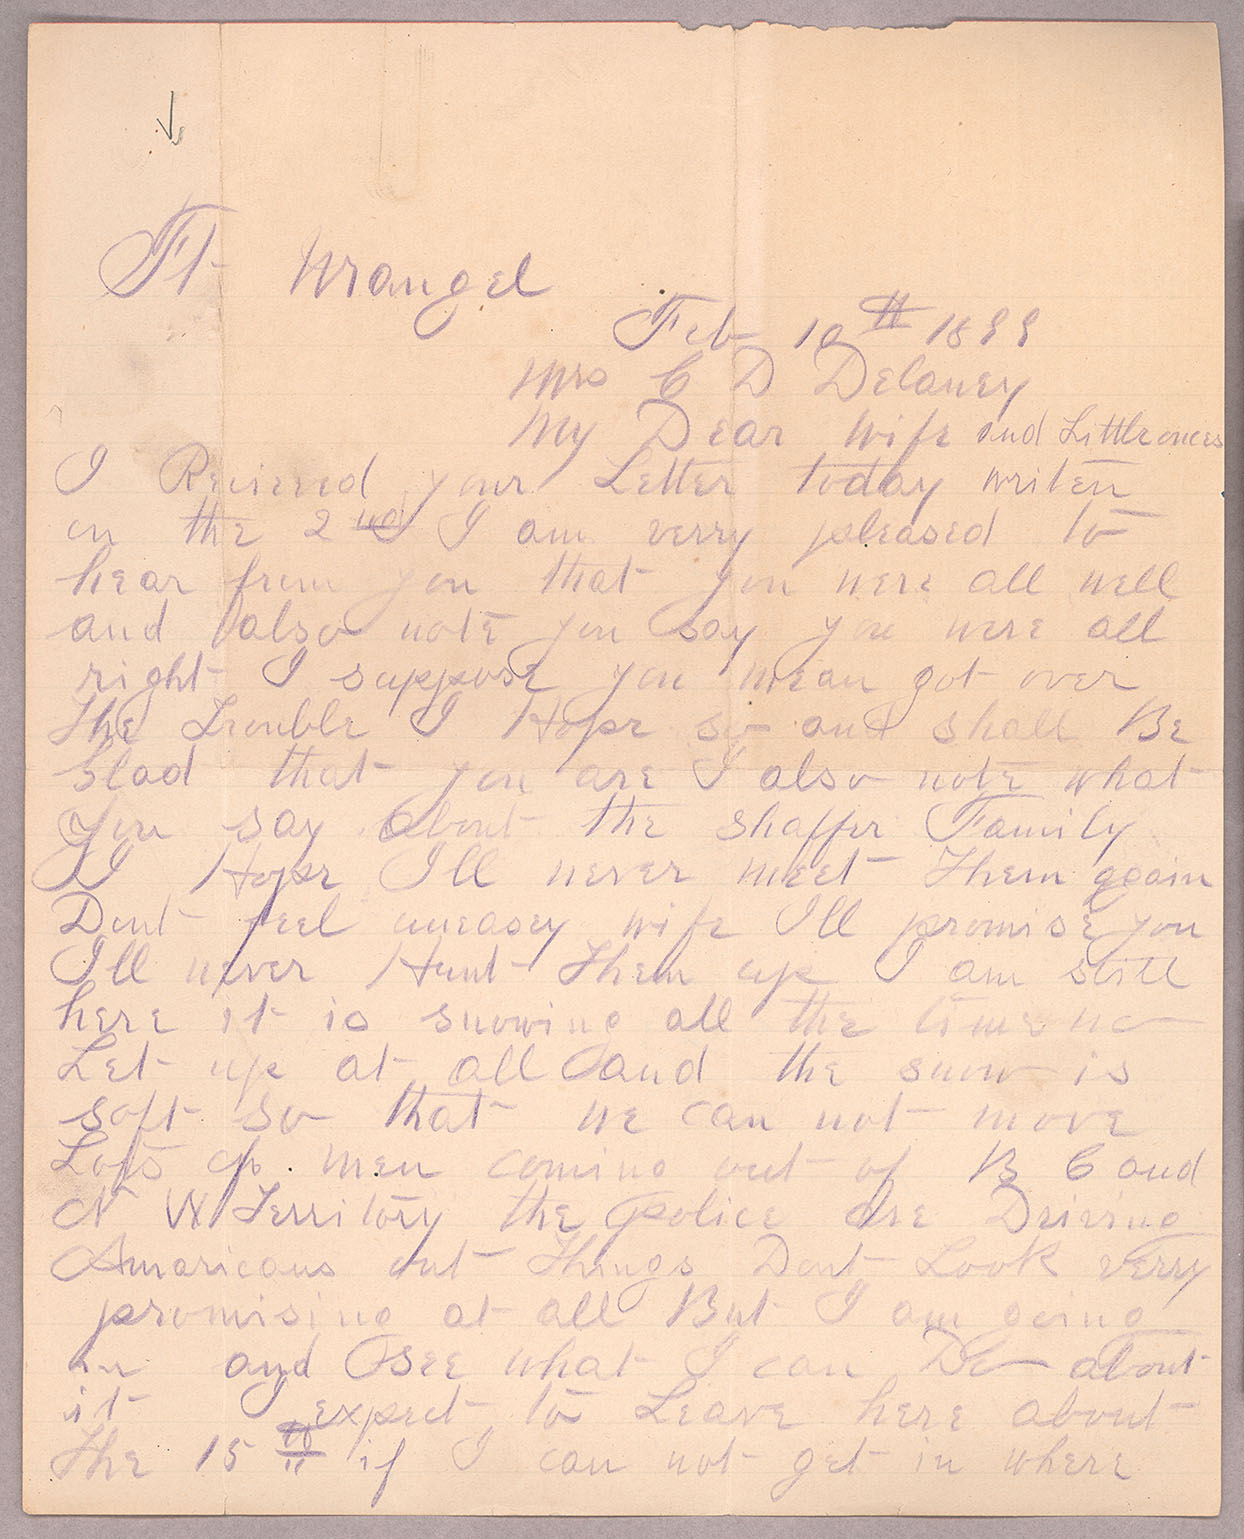 Ft Wrangel
Feb 10th 1899
Mrs C D Delaney
My Dear wife and Little onces
I Recieved your Letter today writen
on the 2nd I am verry pleased to
hear from you that you were all well
and also note you say you were all
right I suppose you mean got over
the Trouble I Hope so and shall Be
Glad that you are I also note what
you say about the shaffer Family
I Hope Ill never meet Them again
Dont feel uneasey wife Ill promise you
Ill never Hunt Them up I am still
here it is snowing all the time no
Let up at all and the snow is
soft so that we can not move
Lots of men coming out of B C and
N W Territory the police are Driving
Amaricans out Things Dont Look verry
promising at all But I am going
in and see what I can Do about
it I expect to Leave here about
the 15th if I can not get in where